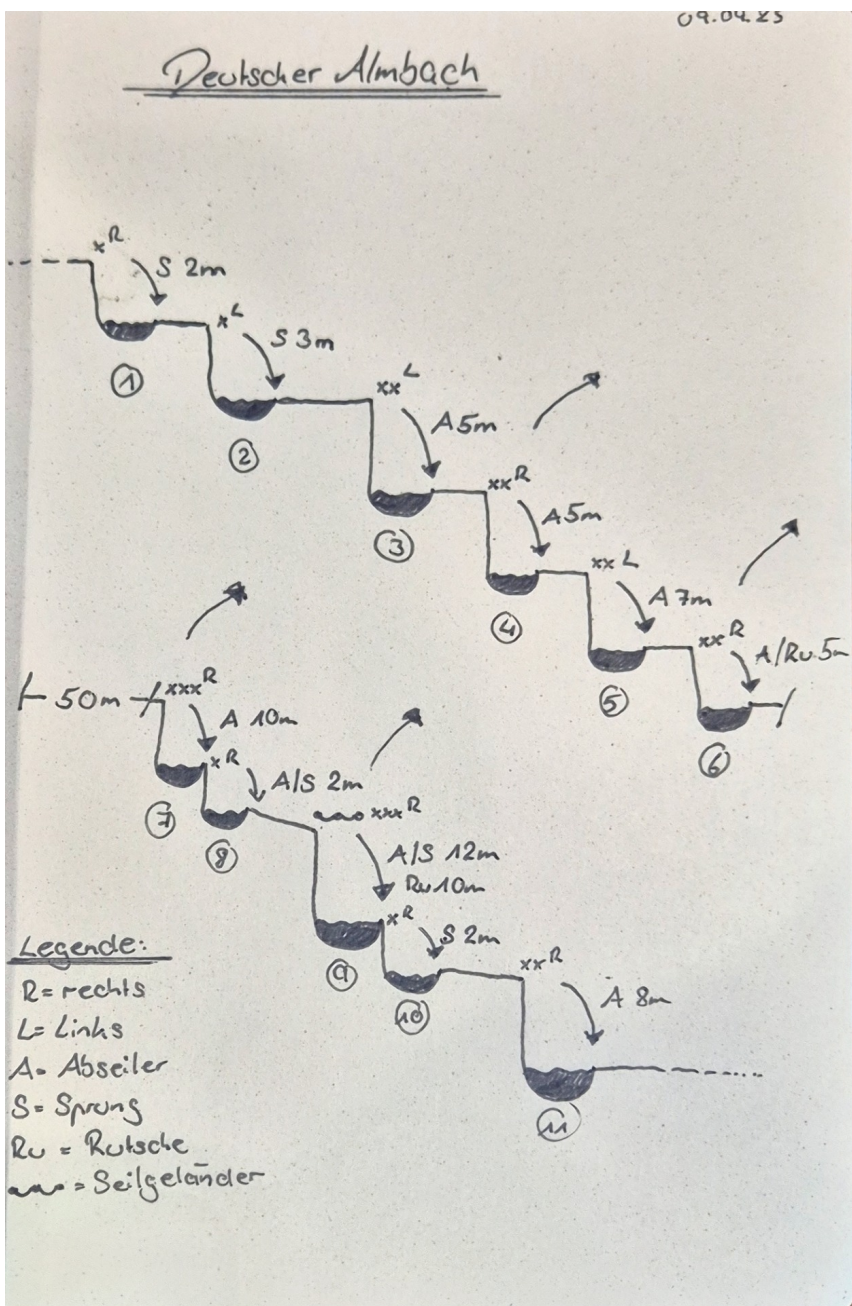 09.04.23
Deutscher Almbach
xR
S 2m
xL
S 3m
1
xxL
A 5m
2
xxR
A 5m
3
xxL
A 7m
4
xxR
A/Ru 5m
5
6
50m
xxxR
A 10m
xR
A/S 2m
7
xxxR
8
A/S 12m
Ru 10m
xR
S 2m
9
xxR
10
A 8m
11
Legende:
R= rechts
L= Links
A= Abseiler
S= Sprung
Ru = Rutsche
= Seilgeländer